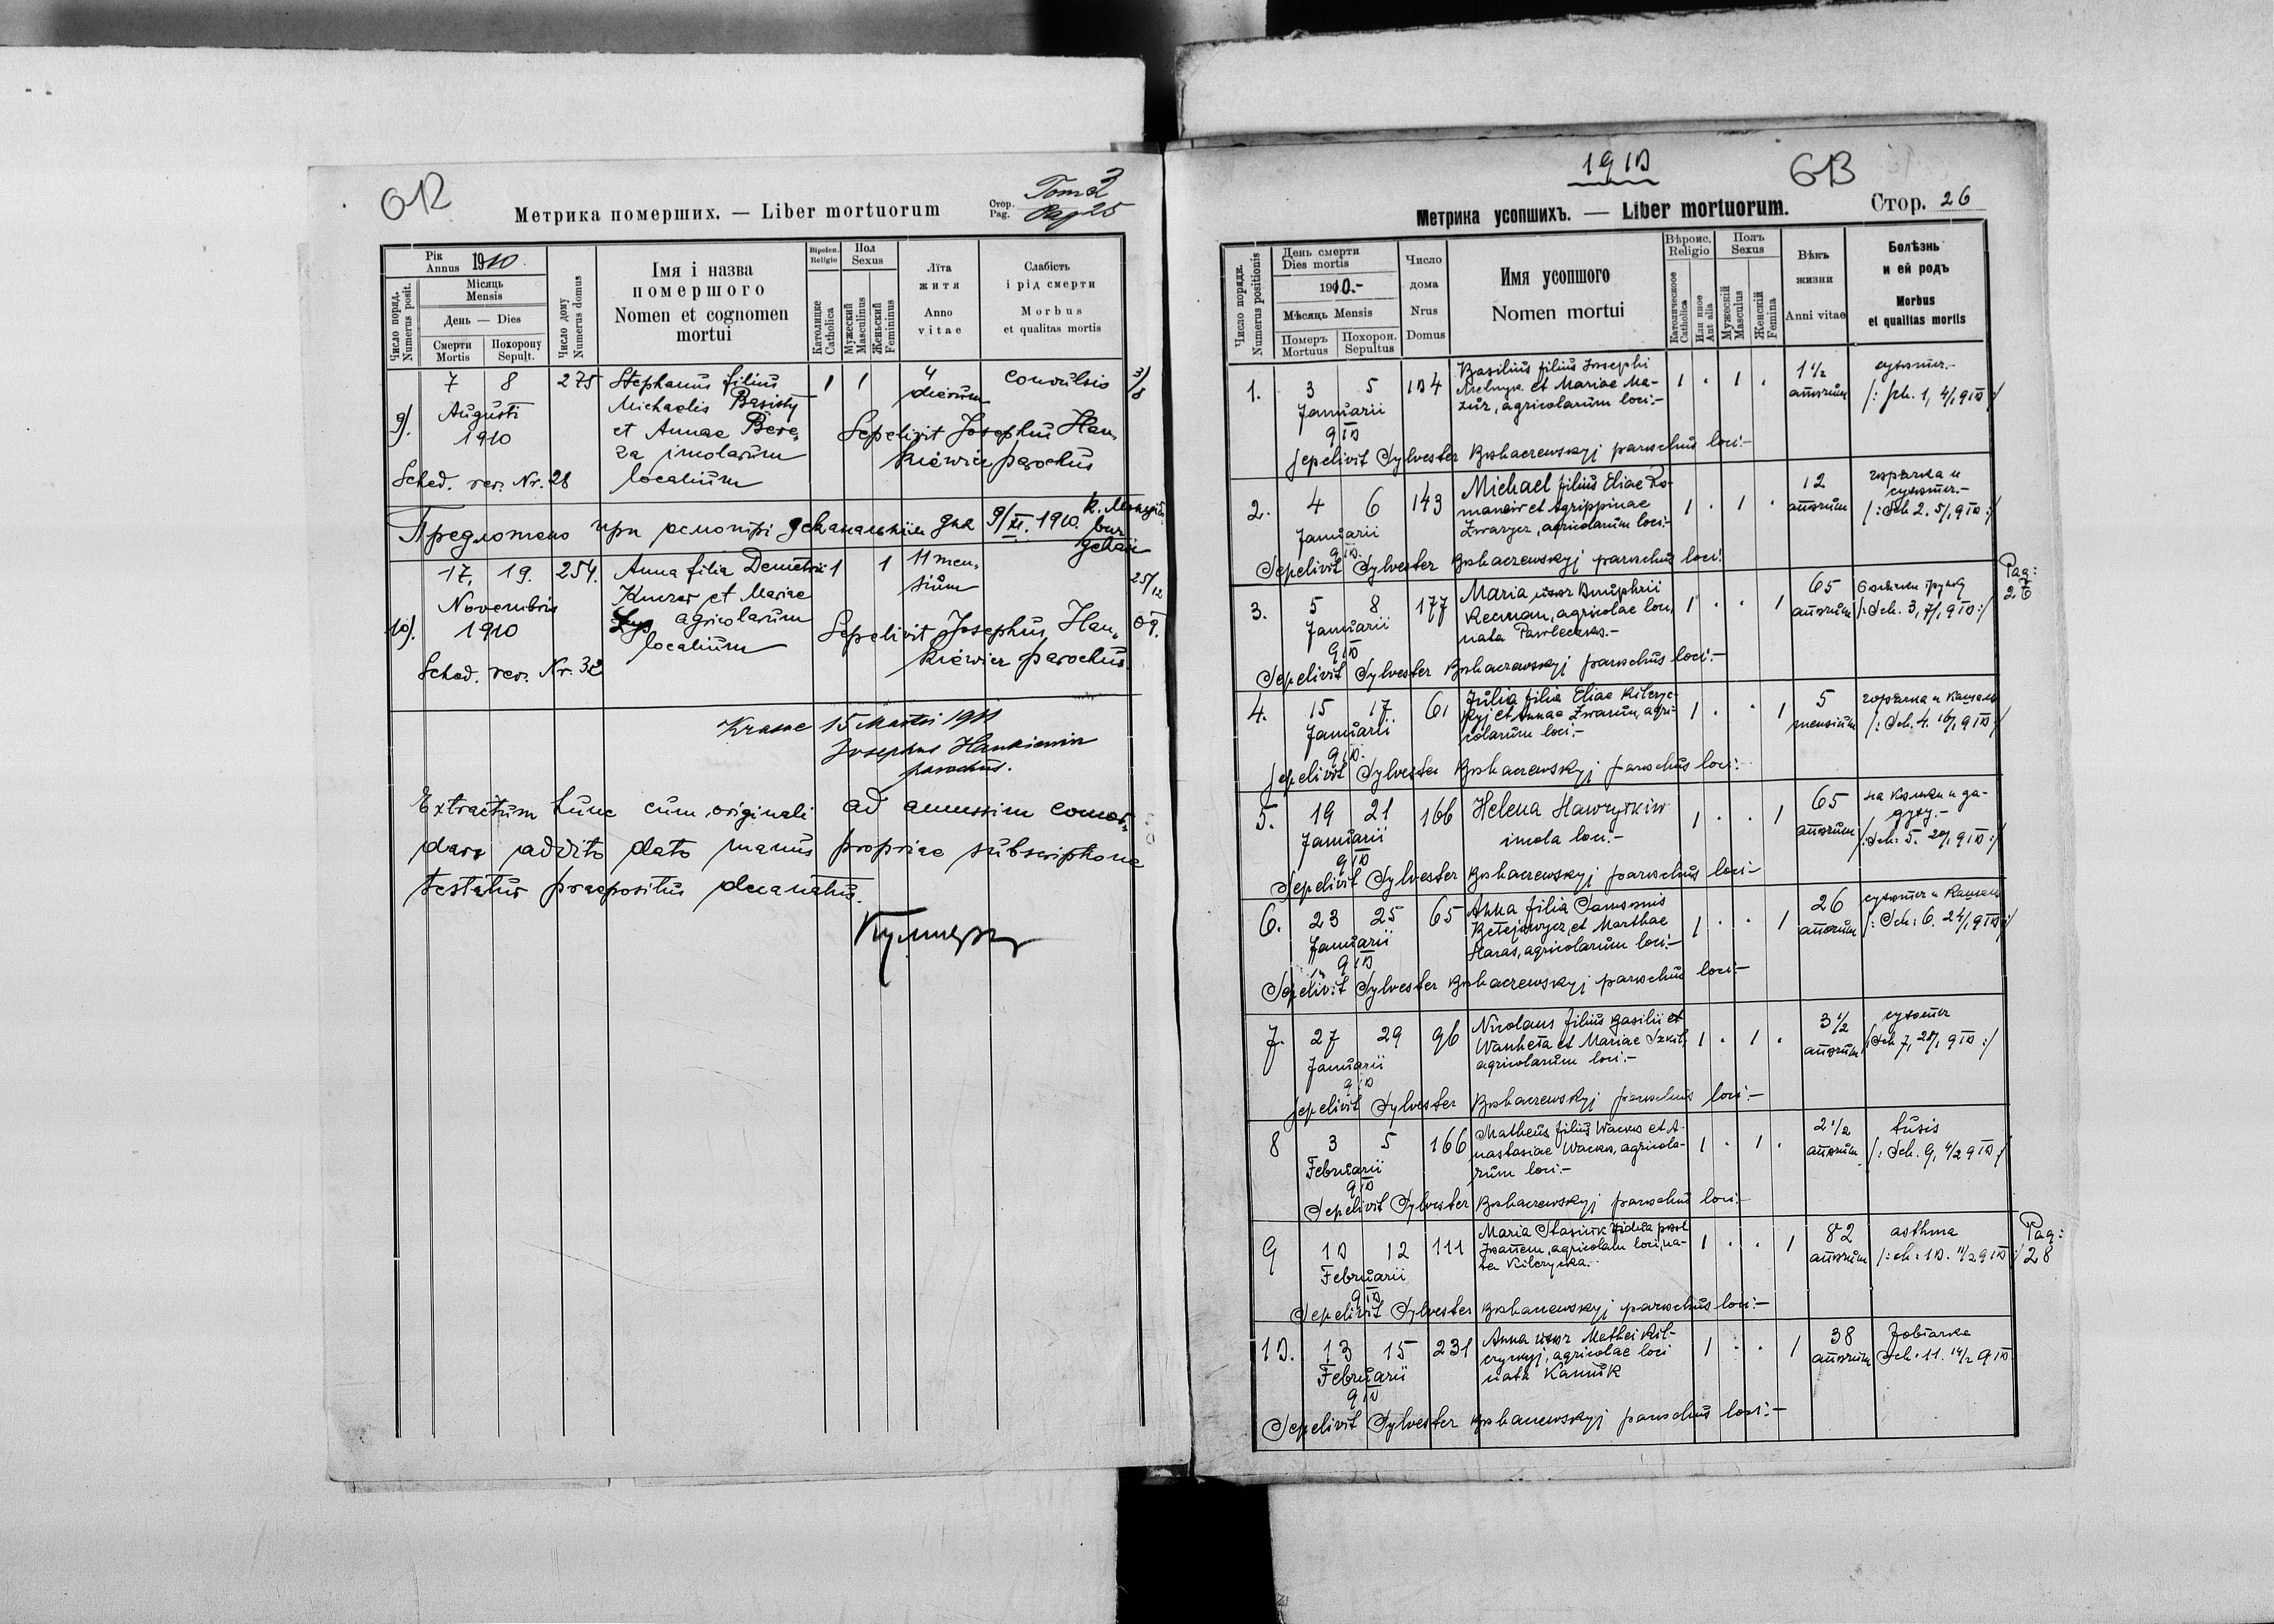 Tom 2
3
Метрика померших. — Liber mortuorum
Стор.
Pag.
Pag 25
Рік
Annus 1910
Місяць
Mensis
День — Dies
Число поряд.
Numerus posit.
Смерти
Mortis
Похорону
Sepult.
Число дому
Numerus domus
Імя і назва
помершого
Nomen et cognomen
mortui
Віроісп.
Religio
Католицке
Catholica
Пол
Sexus
Мужеский
Masculinus
Женьский
Femininus
Лїта
житя
Anno
vitae
Слабість
і рід смерти
Morbus
et qualitas mortis
9).
7 8 275 Stephanus filius 1 1 4 convulsio
Augusti Michaelis Basisty dierum
1910 et Annae Bere-
za inolarum Sepelivit Josephus Han-
Sched. rev. Nr. 28 localium kiewicz parochus
Предложено при осмотрі деканальнім дня 9/XI. 1910.
декан
10).
17. 19. 254. Anna filia Demetrii 1 1 11 men-
Novembris et Mariae sium
1910 agricolarum
localium Sepelivit Josephus Han-
Sched. rev. Nr. 32 kiewicz parochus
25/12
Krasne 15 Martii 1911
Josephus Hankiewicz
parochus.
Extractum hunc cum originali ad amussim concor-
dare addito dato manus propriae subscriptione
testatur praepositus decanatus.
1910
Стор. 26
Метрика усопшихъ. — Liber mortuorum.
Число порядк.
Numerus positionis
День смерти
Dies mortis
1910.-
Мѣсяць Mensis
Померъ
Mortuus
Похорон.
Sepultus
Число
дома
Nrus
Domus
Имя усопшого
Nomen mortui
Вѣроис.
Religio
Католическое
Catholica
Или иное
Aut alia
Полъ
Sexus
Мужескій
Masculus
Женскій
Femina
Вѣкъ
жизни
Anni vitae
Болѣзнь
и ей родъ
Morbus
et qualitas mortis
1. 3 5 104 Basilius filius Josephi 1 . 1 . 1 1/2
Januarii et Mariae Ma- annorum /: Sch. 1, 4/1 910 :/
910 zur, agricolarum loci.-
Sepelivit Sylvester Bohaczewskyj parochus loci.-
2. 4 6 143 Michael filius Eliae Ro- 1 . 1 . 12 горячка и
Januarii maniw et Agrippinae annorum /: Sch 2. 5/1 910 :/
910. Zwarycz, agricolarum loci.-
Sepelivit Sylvester Bohaczewskyj parochus loci.
3. 5 8 177 Maria uxor Onuphrii 1 . . 1 65
Januarii Kecman, agricolae loci, annorum /: Sch. 3, 7/1 910 :/
910 nata Pawleczko.-
Pag:
27
Sepelivit Sylvester Bohaczewskyj parochus loci.-
4. 15 17 61 Julia filia Eliae Kilczyc- 1 . . 1 5 горячка и кашель
Januarii kyj et Annae Zwarun, agri- mensium /: Sch. 4. 16/1 910 :/
910. colarum loci.-
Sepelivit Sylvester Bohaczewskyj parochus loci.
5. 19 21 166 Helena Hawrytkiw 1 . . 1 65 на кольки и за-
Januarii incola loci.- annorum духу.-
910 /: Sch: 5. 20/1 910 :/
Sepelivit Sylvester Bohaczewskyj parochus loci.-
6. 23 25 65 Anna filia Samsonis 1 . . 1 26
Januarii et Marthae annorum /: Sch: 6. 24/1 910 :/
910 Haras, agricolarum loci.-
Sepelivit Sylvester Bohaczewskyj parochus loci.-
7. 27 29 96 Nicolaus filius Basilii et 1 . 1 . 3 1/2
Januarii et Mariae annorum /: Sch 7, 28/1 910 :/
910 agricolarum loci.-
Sepelivit Sylvester Bohaczewskyj parochus loci.-
8 3 5 166 Matheus filius Wacko et A- 1 . 1 . 2 1/2 tusis
Februarii nastasiae Wacko, agricola- annorum /: Sch. 9, 4/2 910 :/
910 rum loci.-
Sepelivit Sylvester Bohaczewskyj parochus loci.-
9 10 12 111 Maria Stasiuk vidua post 1 . . 1 82 asthma
Februarii Joannem, agricolam loci, na- annorum /: Sch: 10. 11/2 910 :/
910 ta Kilczycka.
Pag:
28
Sepelivit Sylvester Bohaczewskyj parochus loci.-
10. 13 15 231 Anna uxor Mathei Kil- 1 . . 1 38
Februarii czyckyj, agricolae loci annorum Sch. 11. 14/2 910
910 nata
Sepelivit Sylvester Bohaczewskyj parochus loci.-